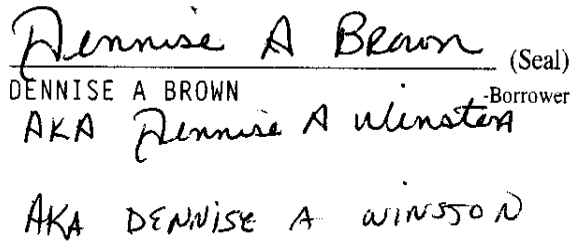 Dennise A Brown (Seal)
DENNISE A BROWN -Borrower
AKA Dennise A Winston
AKA DENNISE A WINSTON